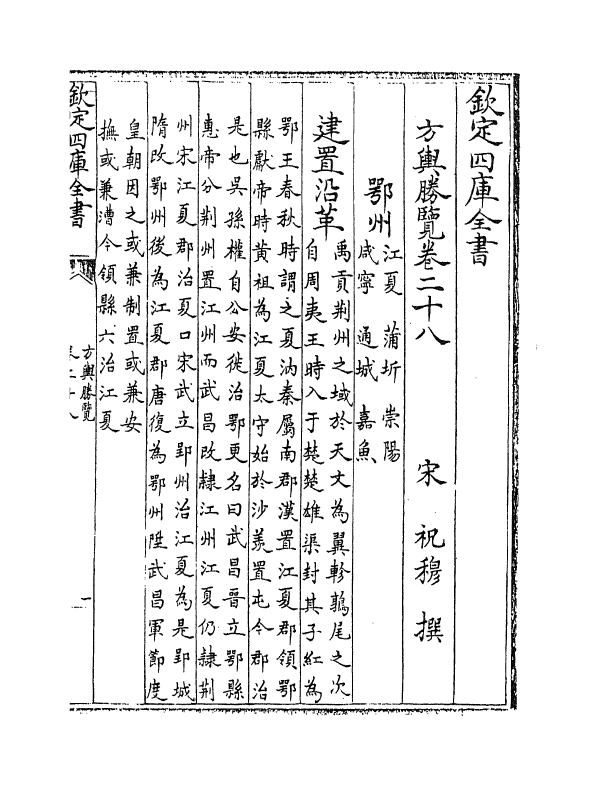 欽定四庫全書
方輿勝覽卷二十八　宋　祝穆　撰
鄂州
江夏　蒲圻　崇陽
咸寧　通城　嘉魚
建置沿革
禹貢荆州之域於天文為翼軫鶉尾之次
自周夷王時入于楚楚雄渠封其子紅為
鄂王春秋時謂之夏汭秦屬南郡漢置江夏郡領鄂
縣獻帝時黄祖為江夏太守始於沙羨置屯今郡治
是也吳孫權自公安徙治鄂更名曰武昌晉立鄂縣
惠帝分荆州置江州而武昌改隸江州江夏仍隸荆
州宋江夏郡治夏口宋武立郢州治江夏為是郢城
隋改鄂州後為江夏郡唐復為鄂州陞武昌軍節度
皇朝因之或兼制置或兼安
撫或兼漕今領縣六治江夏
欽定四庫全書
方輿勝覽
卷二十八
一